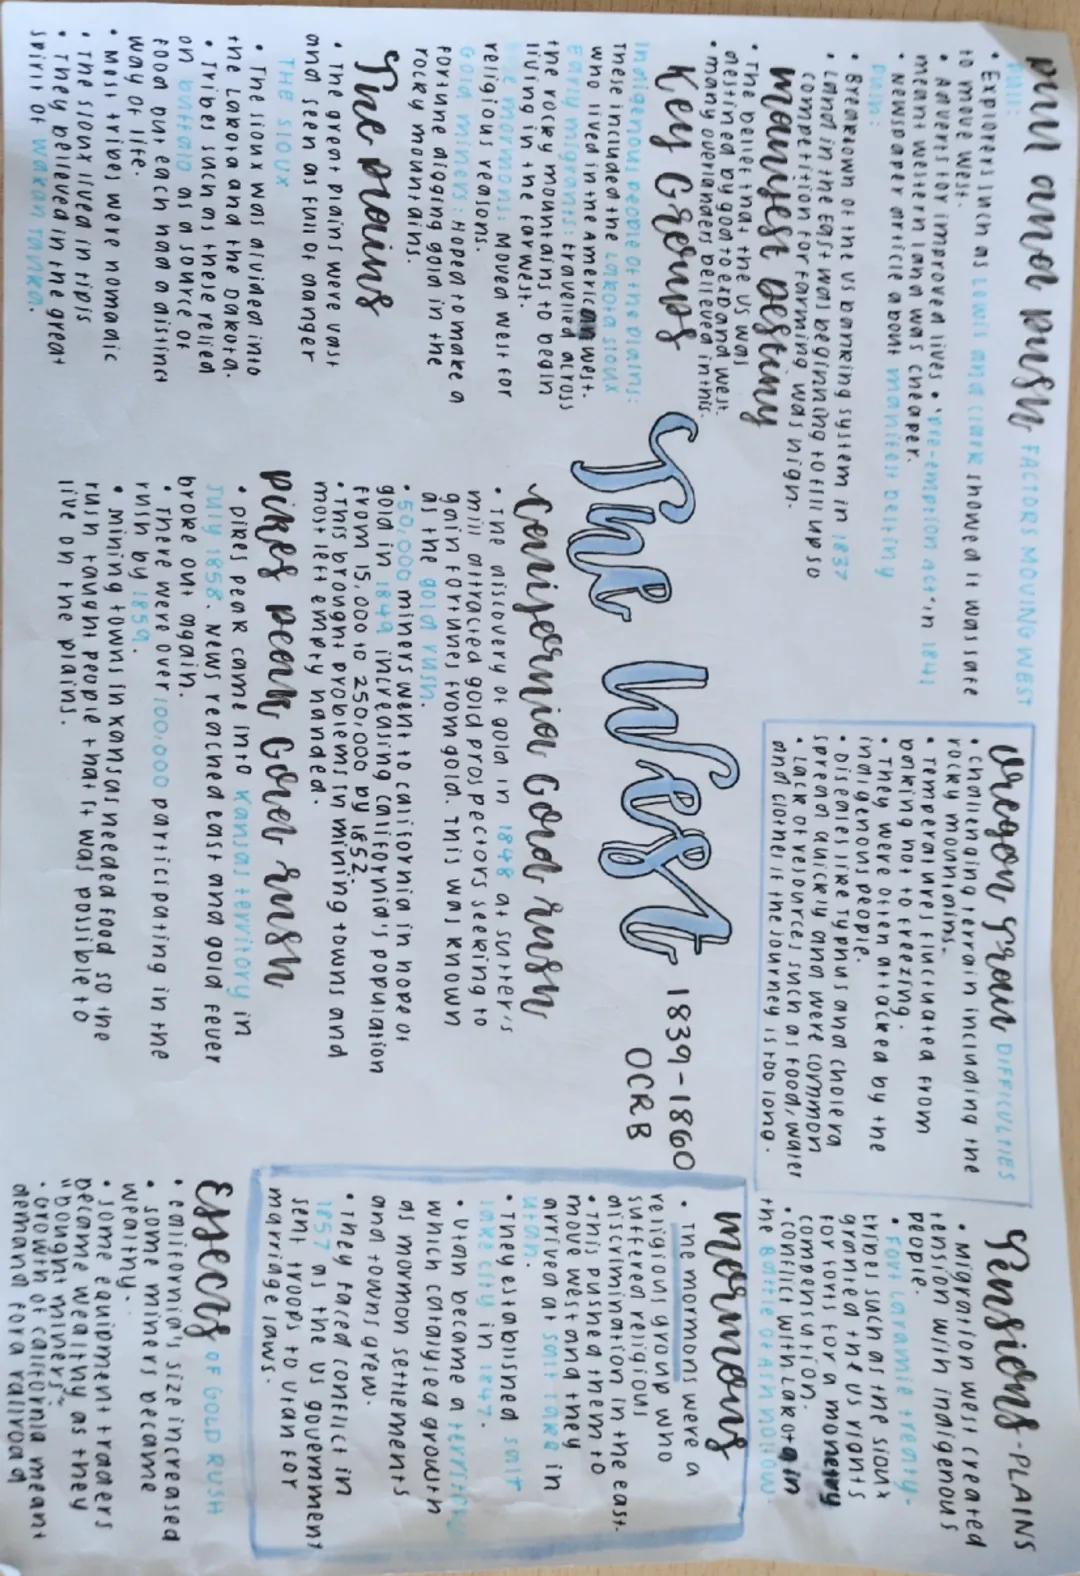 pull and push FACTORS MOVING WEST
PULL:
• Explorers such as Lewis and Clark showed it was safe
to move west.
• Adverts for improved lives • 'pre-emption act' in 1841
meant western land was cheaper.
• Newspaper article about manifest destiny
push:
• Breakown of the US banking system in 1837
• Land in the East was beginning to fill up so
competition for farming was high.
manifest destiny
• The belief that the US was
destined by god to expand west.
• many overlanders believed in this.
Key Groups
Indigenous people of the plains:
these included the Lakota Sioux
who lived in the American west.
Early migrants: travelled across
the rocky mountains to begin
living in the far west.
The mormons: Moved west for
religious reasons.
Gold miners: Hoped to make a
fortune digging gold in the
rocky mountains.
The plains
• The great plains were vast
and seen as full of danger
THE SIOUX
• The Sioux was divided into
the Lakota and the Dakota.
• Tribes such as these relied
on buffalo as a source of
food but each had a distinct
way of life.
• Most tribes were nomadic
• The Sioux lived in tipis
• They believed in the great
spirit of wakan tanka.
The West 1839-1860
OCR B
california Gold rush
• The discovery of gold in 1848 at Sutter's
mill attracted gold prospectors seeking to
gain fortunes from gold. This was known
as the gold rush.
• 50,000 miners went to california in hope of
gold in 1849 increasing california's population
from 15,000 to 250,000 by 1852.
• This brought problems in mining towns and
most left empty handed.
pikes peak Gold rush
• pikes peak came into Kansas territory in
July 1858. News reached east and gold fever
broke out again.
• There were over 100,000 participating in the
rush by 1859.
• Mining towns in kansas needed food so the
rush taught people that it was possible to
live on the plains.
Oregon Trail DIFFICULTIES
• challenging terrain including the
rocky mountains.
• Temperatures fluctuated from
baking hot to freezing.
• They were often attacked by the
indigenous people.
• Diseases like Typhus and cholera
spread quickly and were common
• Lack of resources such as food, water
and clothes if the journey is too long.
Tensions - PLAINS
• Migration west created
tension with indigenous
people.
• Fort Laramie treaty -
tribes such as the sioux
granted the US rights
for forts for a monetry
compensation.
• conflict with Lakota in
the Battle of Ash hollow.
mormons
• The mormons were a
religious group who
suffered religious
discrimination in the east.
• This pushed them to
move west and they
arrived at salt lake in
Utah.
• They established salt
lake city in 1847.
• Utah became a territory
which catalysed growth
as mormon settlements
and towns grew.
• They faced conflict in
1857 as the US government
sent troops to Utah for
marriage laws.
Effects OF GOLD RUSH
• California's size increased
• some miners became
wealthy.
• some equipment traders
became wealthy as they
"bought miners".
• Growth of california meant
demand for a railroad